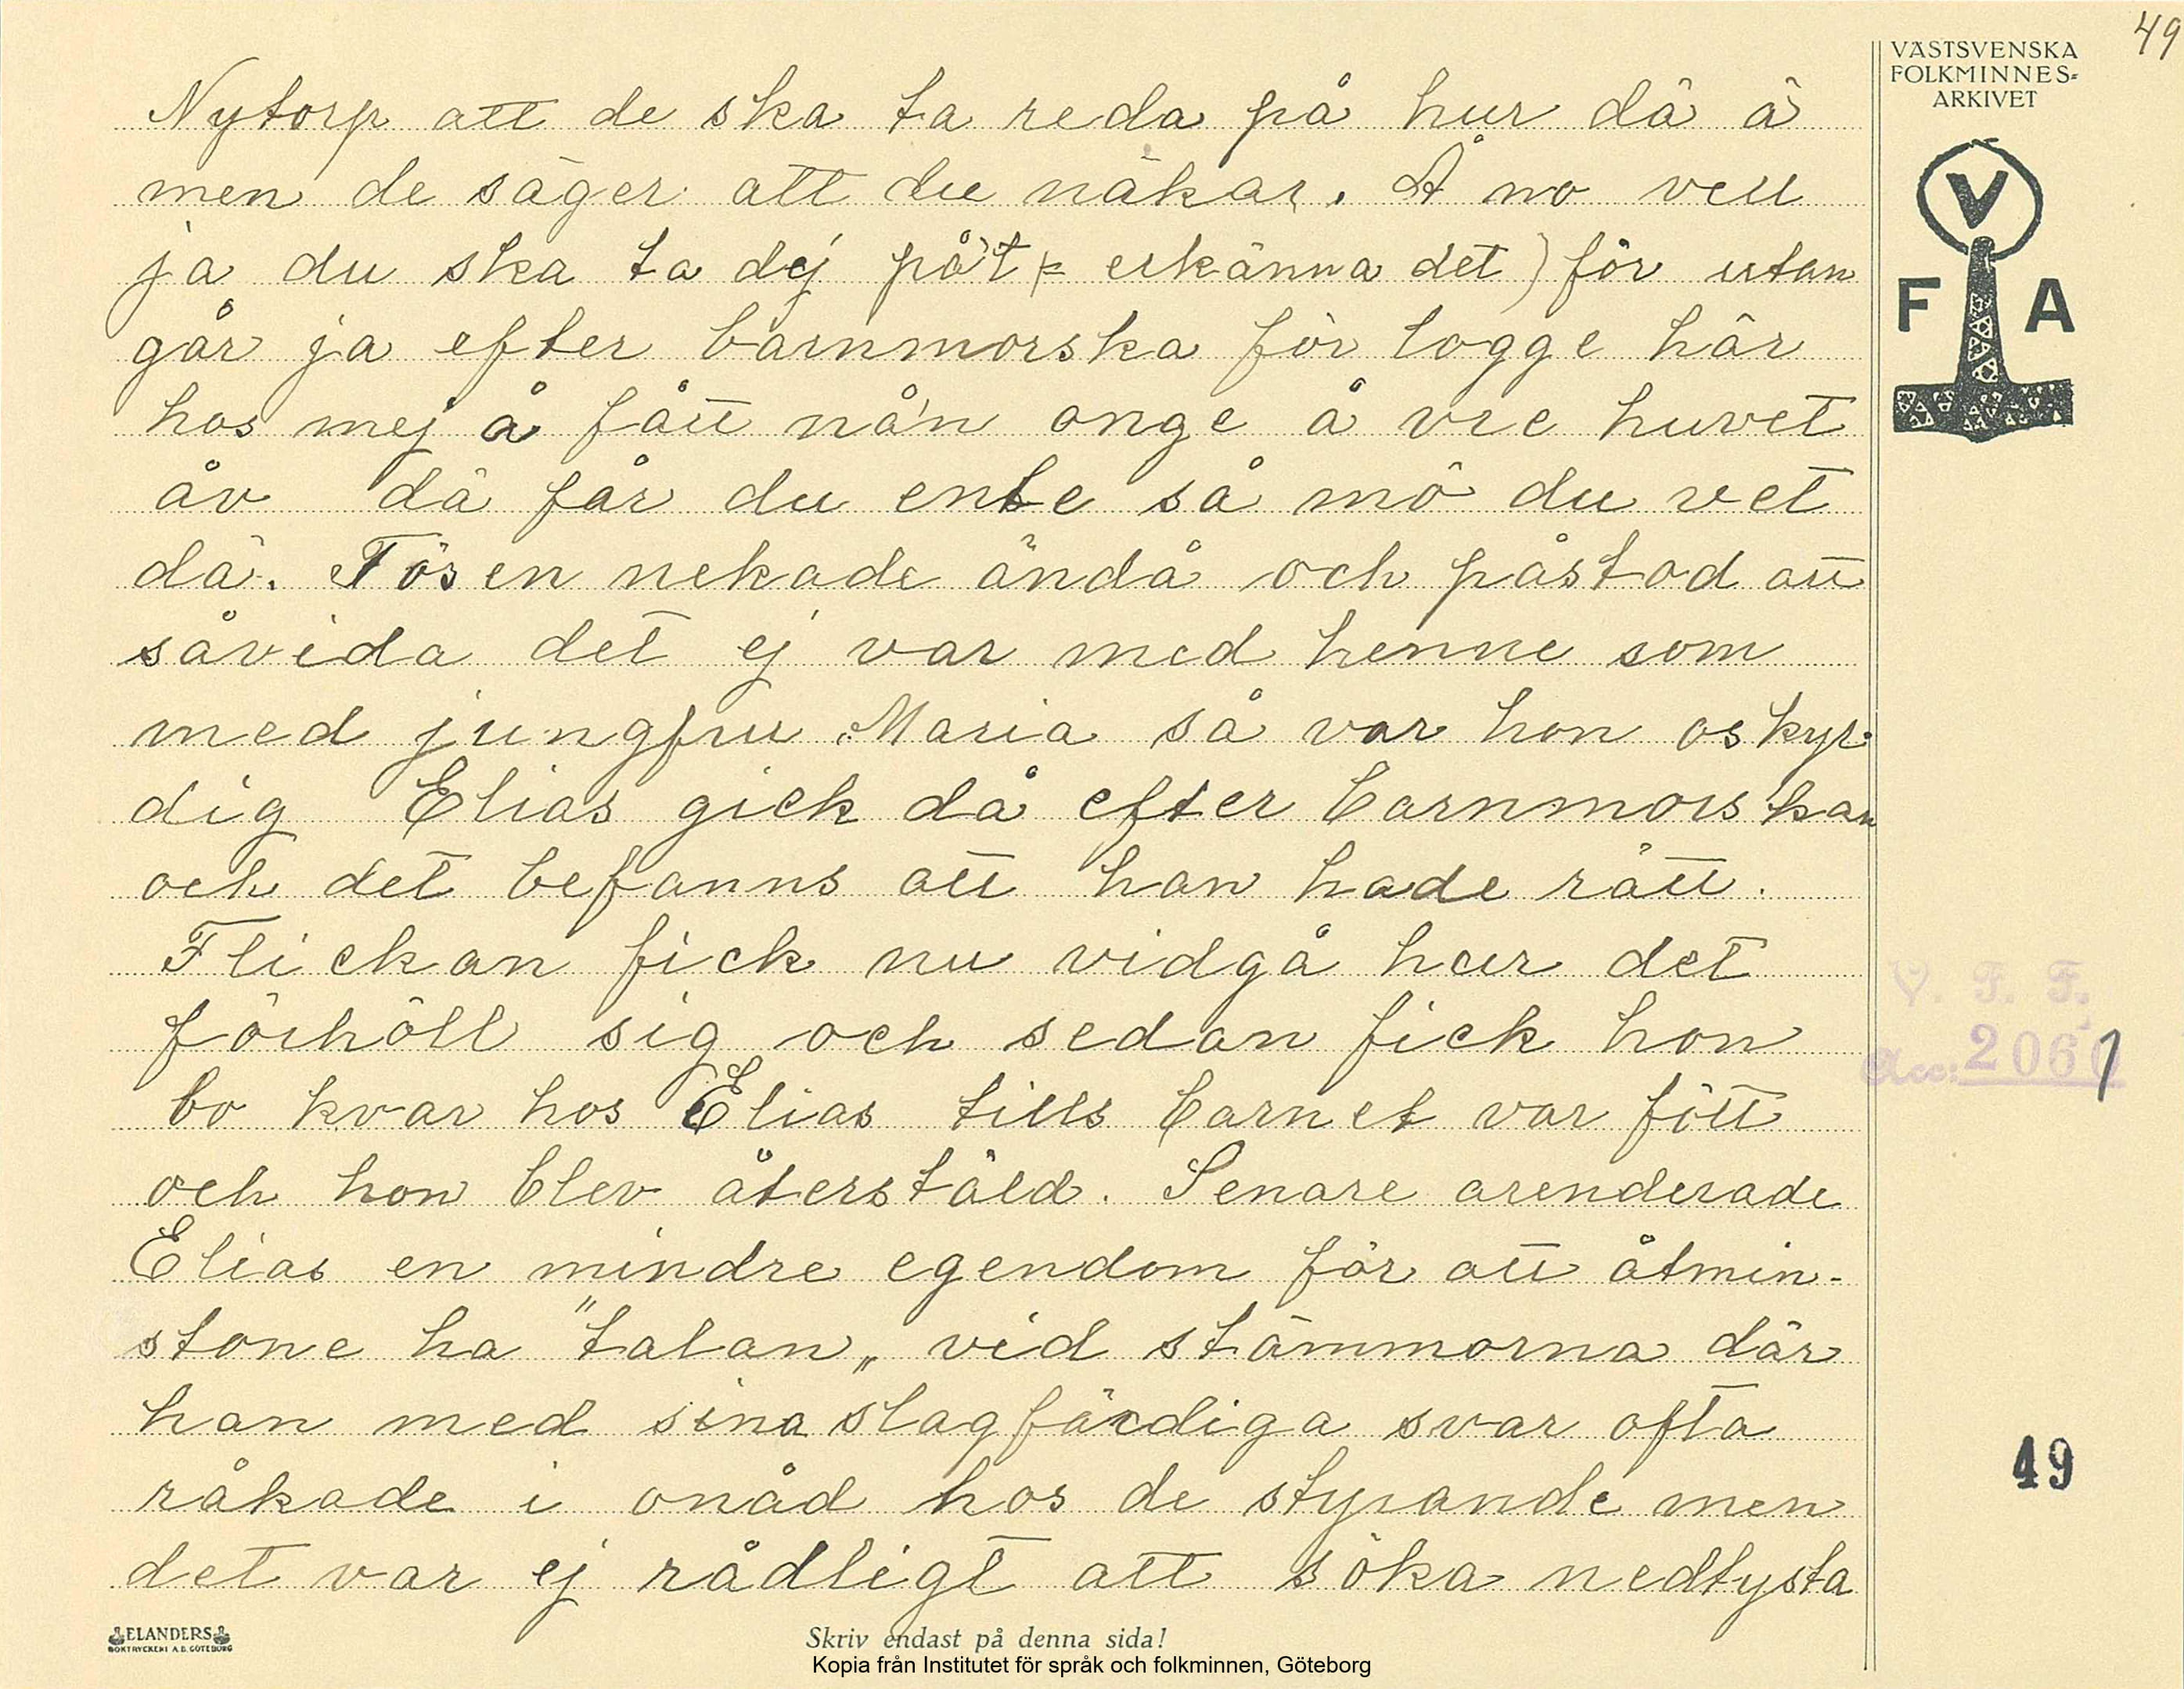 49
VÄSTSVENSKA
FOLKMINNES=
ARKIVET
V
F A
Nytorp att de ska ta reda på hur dä ä
men de säger att du näkar. Å no vell
ja du ska ta dej på't (= erkänna det) för utan
går ja efter barnmorska för logge här
hos mej å fått nå'n onge å vre huvet
åv dä får du ente så mö du vet
dä. Tösen nekade ändå och påstod att
såvida det ej var med henne som
med jungfru Maria så var hon oskyl-
dig Elias gick då efter barnmorskan
och det befanns att han hade rätt.
Flickan fick nu vidgå hur det
förhöll sig och sedan fick hon
bo kvar hos Elias tills barnet var fött
och hon blev återstäld. Senare arenderade
Elias en mindre egendom för att åtmin-
stone ha "talan" vid stämmorna där
han med sina slagfärdiga svar ofta
råkade i onåd hos de styrande men
det var ej rådligt att söka nedtysta
V. F. F.
Acc: 2061
49
ELANDERS
BOKTRYCKERI A.B. GÖTEBORG
Skriv endast på denna sida!
Kopia från Institutet för språk och folkminnen, Göteborg